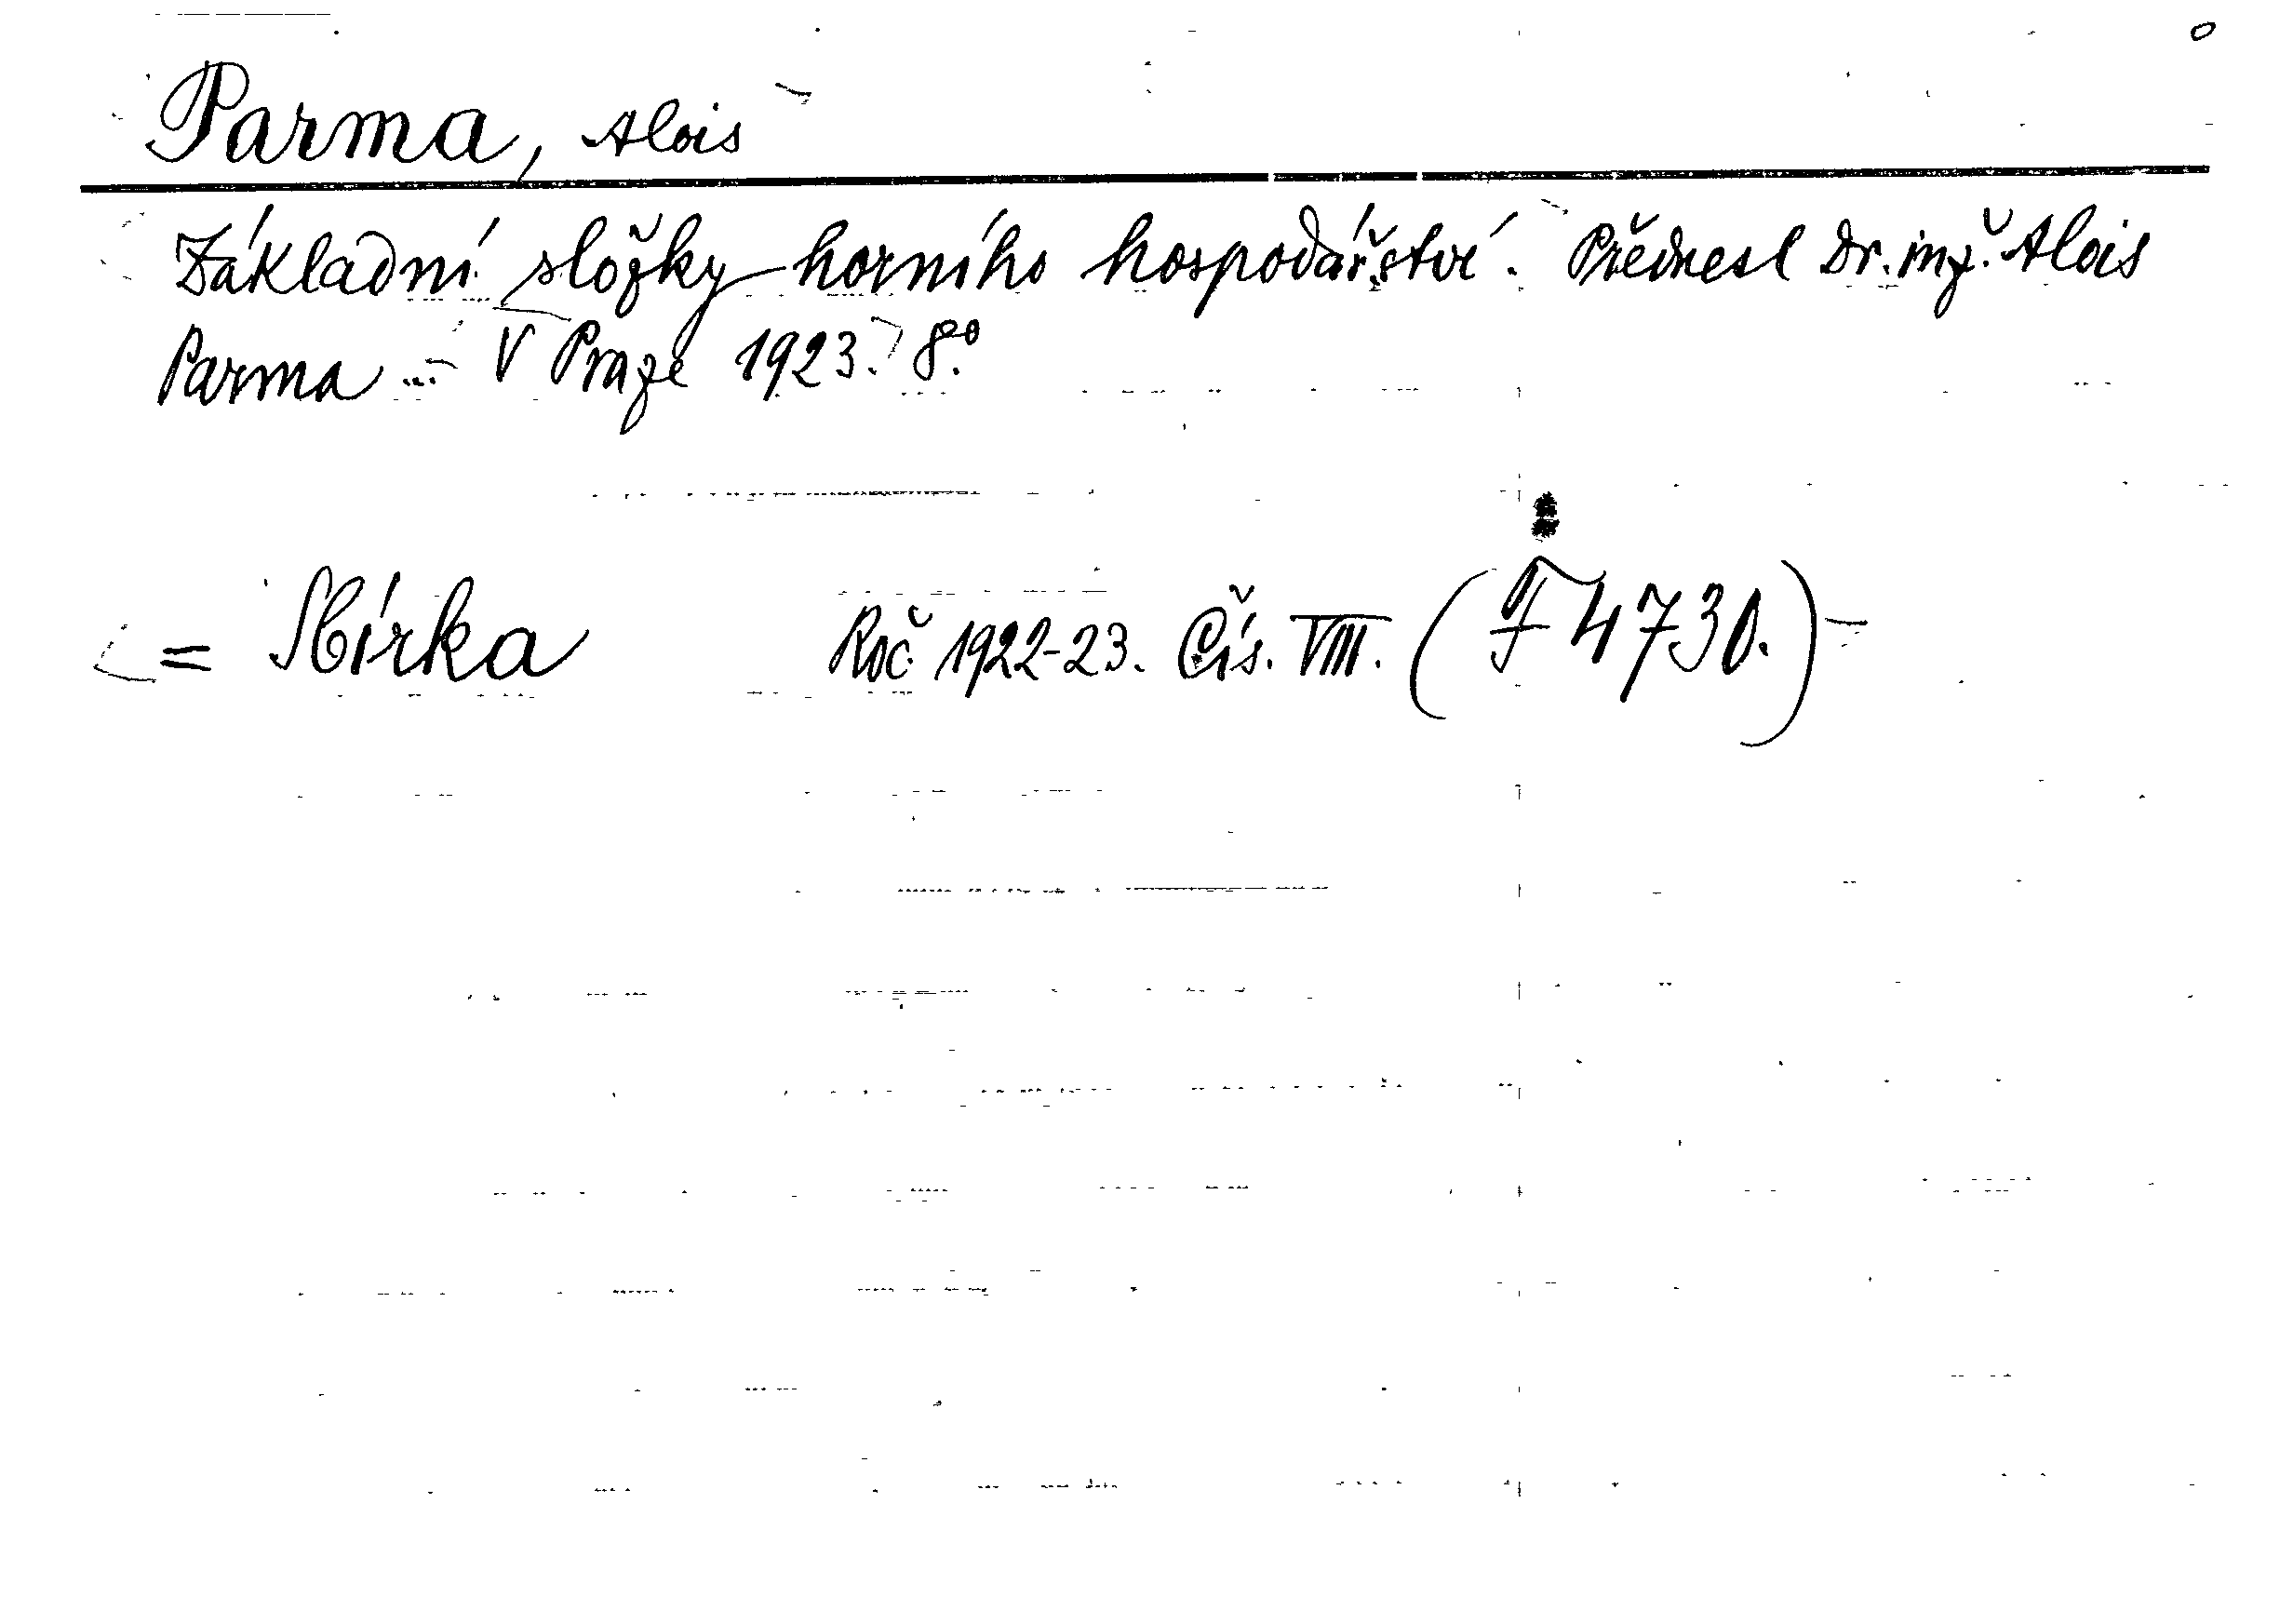 Parma, Alois
Základní složky horního hospodářství. Přednesl Dr. inž. Alois
Parma ... V Praze 1923. 8º.
= Sbírka Roč. 1922-23. Čís. VIII. (F 4730.)